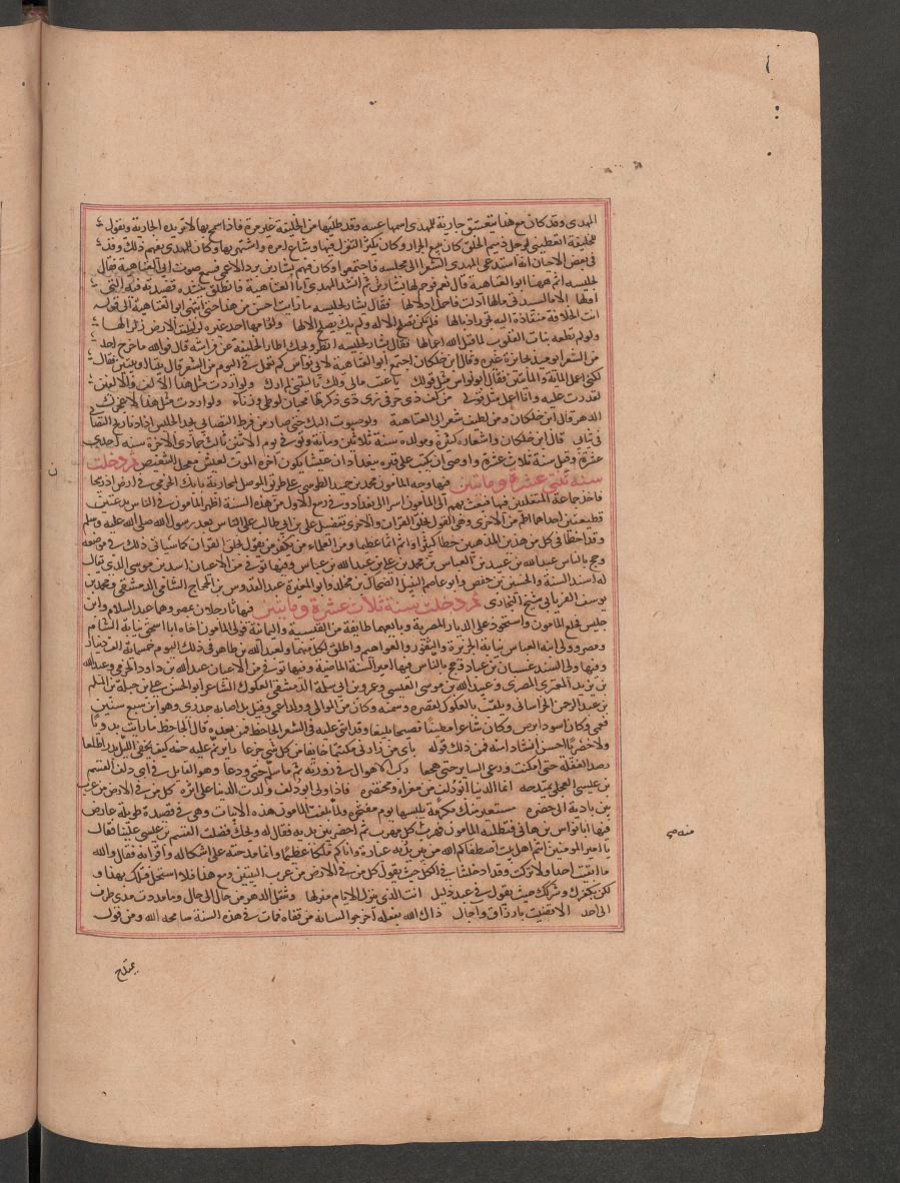 المهدى وقد كان مع هذا متعشق جارية للمهدى اسمها عتبة وقد طلبها من الخليفة غير مرة فاذا سمح بها لا تريده الجارية وتقول
للخليفة اتعطينى لرجل ذميم الخلق كان يبيع الجرار وكان يكثر التغزل فيها وشاع امره واشتهر بها وكان المهدى يفهم ذلك وقد
فى بعض الاحيان انه استدعى المهدى الشعرا الى مجلسه فاجتمعوا وكان فيهم بشار بن برد الاعمى فسمع صوت ابى العتاهية فقال
لجليسه اثم ههنا ابو العتاهية قال نعم فانطلق ينشد قصيدته فيها التى
اولها الا ما لسيدتى ما لها ادلت فاحمل ادلالها فقال بشار لجليسه ما رايت اجسر من هذا حتى انتهى ابو العتاهية الى قوله
اتت الخلافة منقادة اليه تجرر اذيالها فلم تكن تصلح الا له ولم يك يصلح الا لها ولو رامها احد غيره لزلزلت الارض زلزالها
ولو لم تطعه بنات القلوب لما قبل الله اعمالها فقال بشار لجليسه انظر ويحك اطار الخليفة عن فراشه قال فوالله ما خرج احد
من الشعرا يومئذ بجائزة غيره وقال ابن خلكان اجتمع ابو العتاهية لابى نواس كم تقول فى اليوم من الشعر قال بيتا او بيتين فقال
لكنى اعمل المائة والمائتين فقال ابو نواس مثل قولك يا عتب مالى ولك يا ليتنى لم ارك ولو اردت مثل هذا الالف والالفين
لقدرت عليه وانا اعمل مثل قولى من كف ذى حر فى زى ذى ذكر لها محبان لوطى وزناء ولو اردت مثل هذا لاعجزك
الدهر قال ابن خلكان ومن لطيف شعر ابى العتاهية ولقد صبوت اليك حتى صار من فرط التصابى يجد الجليس اذا دنا ريح التصابى
فى ثيابى قال ابن خلكان واشعاره كثيرة ومولده سنة ثلاثين ومائة وتوفى يوم الاثنين ثالث جمادى الاخرة سنة احدى
عشرة وقيل سنة ثلاث عشرة واوصى ان يكتب على قبره ببغداد ان عيشا يكون آخره الموت لعيش معجل التنغيص ثم دخلت
سنة ثنتى عشرة ومائتين فيها وجه المامون محمد بن حميد الطوسى على طريق الموصل لمحاربة بابك الخرمى فى ارض اذربيجان
فاخذ جماعة المتغلبين فيها فبعث بهم الى المامون اسرا الى بغداد وفى ربيع الاول من هذه السنة اظهر المامون فى الناس بدعتين
فظيعتين احداهما اطم من الاخرى وهى القول بخلق القران والاخرى تفضيل على بن ابى طالب على الناس بعد رسول الله صلى الله عليه وسلم
وقد اخطا فى كل من هذين المذهبين خطا كبيرا واثم اثما عظيما ومن العلماء من يكفر من يقول بخلق القران كما سياتى ذلك فى موضعه
وحج بالناس عبد الله بن عبيد الله بن العباس بن محمد بن على بن عبد الله بن عباس وفيها توفى من الاعيان اسد بن موسى الذى يقال
له اسد السنة والحسين بن حفص وابو عاصم النبيل الضحاك بن مخلد وابو المغيرة عبد القدوس بن الحجاج الشامى الدمشقى ومحمد بن
يوسف الفريابى شيخ البخارى ثم دخلت سنة ثلاث عشرة ومايتين فيها ثار رجلان بمصر وهما عبد السلام وابن
جليس فخلع المامون واستحوذ على الديار المصرية وبايعهما طايفة من القيسية واليمانية فولى المامون اخاه ابا اسحق نيابة الشام
ومصر وولى ابنه العباس نيابة الجزيرة والثغور والعواصم واطلق لكل منهما ولعبد الله بن طاهر فى ذلك اليوم خمسماية الف دينار
وفيها ولى السند غسان بن عباد وحج بالناس فيها امير السنة الماضية وفيها توفى من الاعيان عبد الله بن داود الخرمى وعبد الله
بن يزيد المقرى المصرى وعبيد الله بن موسى العبسى وعمرو بن ابى سلمة الدمشقى العكوك الشاعر ابو الحسن على بن جبلة بن المسلم
بن عبد الرحمن الخراسانى ويلقب بالعكوك لقصره وسمنه وكان من الموالى وولد اعمى وقيل بل اصابه جدرى وهو ابن سبع سنين
فعمى وكان اسود ابرص وكان شاعرا مطبقا فصيحا بليغا وقد اثنى عليه فى الشعر الجاحظ فمن بعده قال الجاحظ ما رايت بدويا
ولا حضريا احسن انشاد امنه فمن ذلك قوله بابى من زارنى مكتتما خايفا من كل شى جزعا زاير نم عليه حسنه كيف يخفى الليل بدرا طلعا
رصد الغفلة حتى امكنت ورعى السامر حتى هجعا ركب الاهوال فى زورته ثم ما سلم حتى ودعا وهو القايل فى ابى دلف القسم
بن عيسى العجلى يمتدحه انما الدنيا ابو دلف بين مغزاه ومحتضره فاذا ولى ابو دلف ولت الدنيا على اثره كل من فى الارض من عرب
بين بادية الى حضره مستعير منك مكرمة يلبسها يوم مفتخره ولما بلغت المامون هذه الابيات وهى فى قصيدة طويلة عارض
فيها ابا نواس بن هانى فتطلبه المامون فهرب كل مهرب ثم احضر بين يديه فقال له ويحك فضلت القسم بن عيسى علينا فقال
يا امير المومنين انتم اهل بيت اصطفاكم الله من بين عباده واتاكم ملكا عظيما وانما مدحته على اشكاله واقرانه فقال والله
ما ابقيت احدا ولا تركت وقد ادخلتنا فى الكل حيث تقول كل من فى الارض من عرب البيتين ومع هذا فلا استحل قتلك بهذا و
لكن بكفرك وشركك حيث تقول فى عبد ذليل انت الذى تنزل الايام منزلها وتنقل الدهر من حال الى حال وما مددت مدى طرف
الى احد الا قضيت بارزاق وآجال ذاك الله يفعله اخرجوا لسانه من قفاه فمات فى هذه السنة سامحه الله ومن قوله
يمتدح